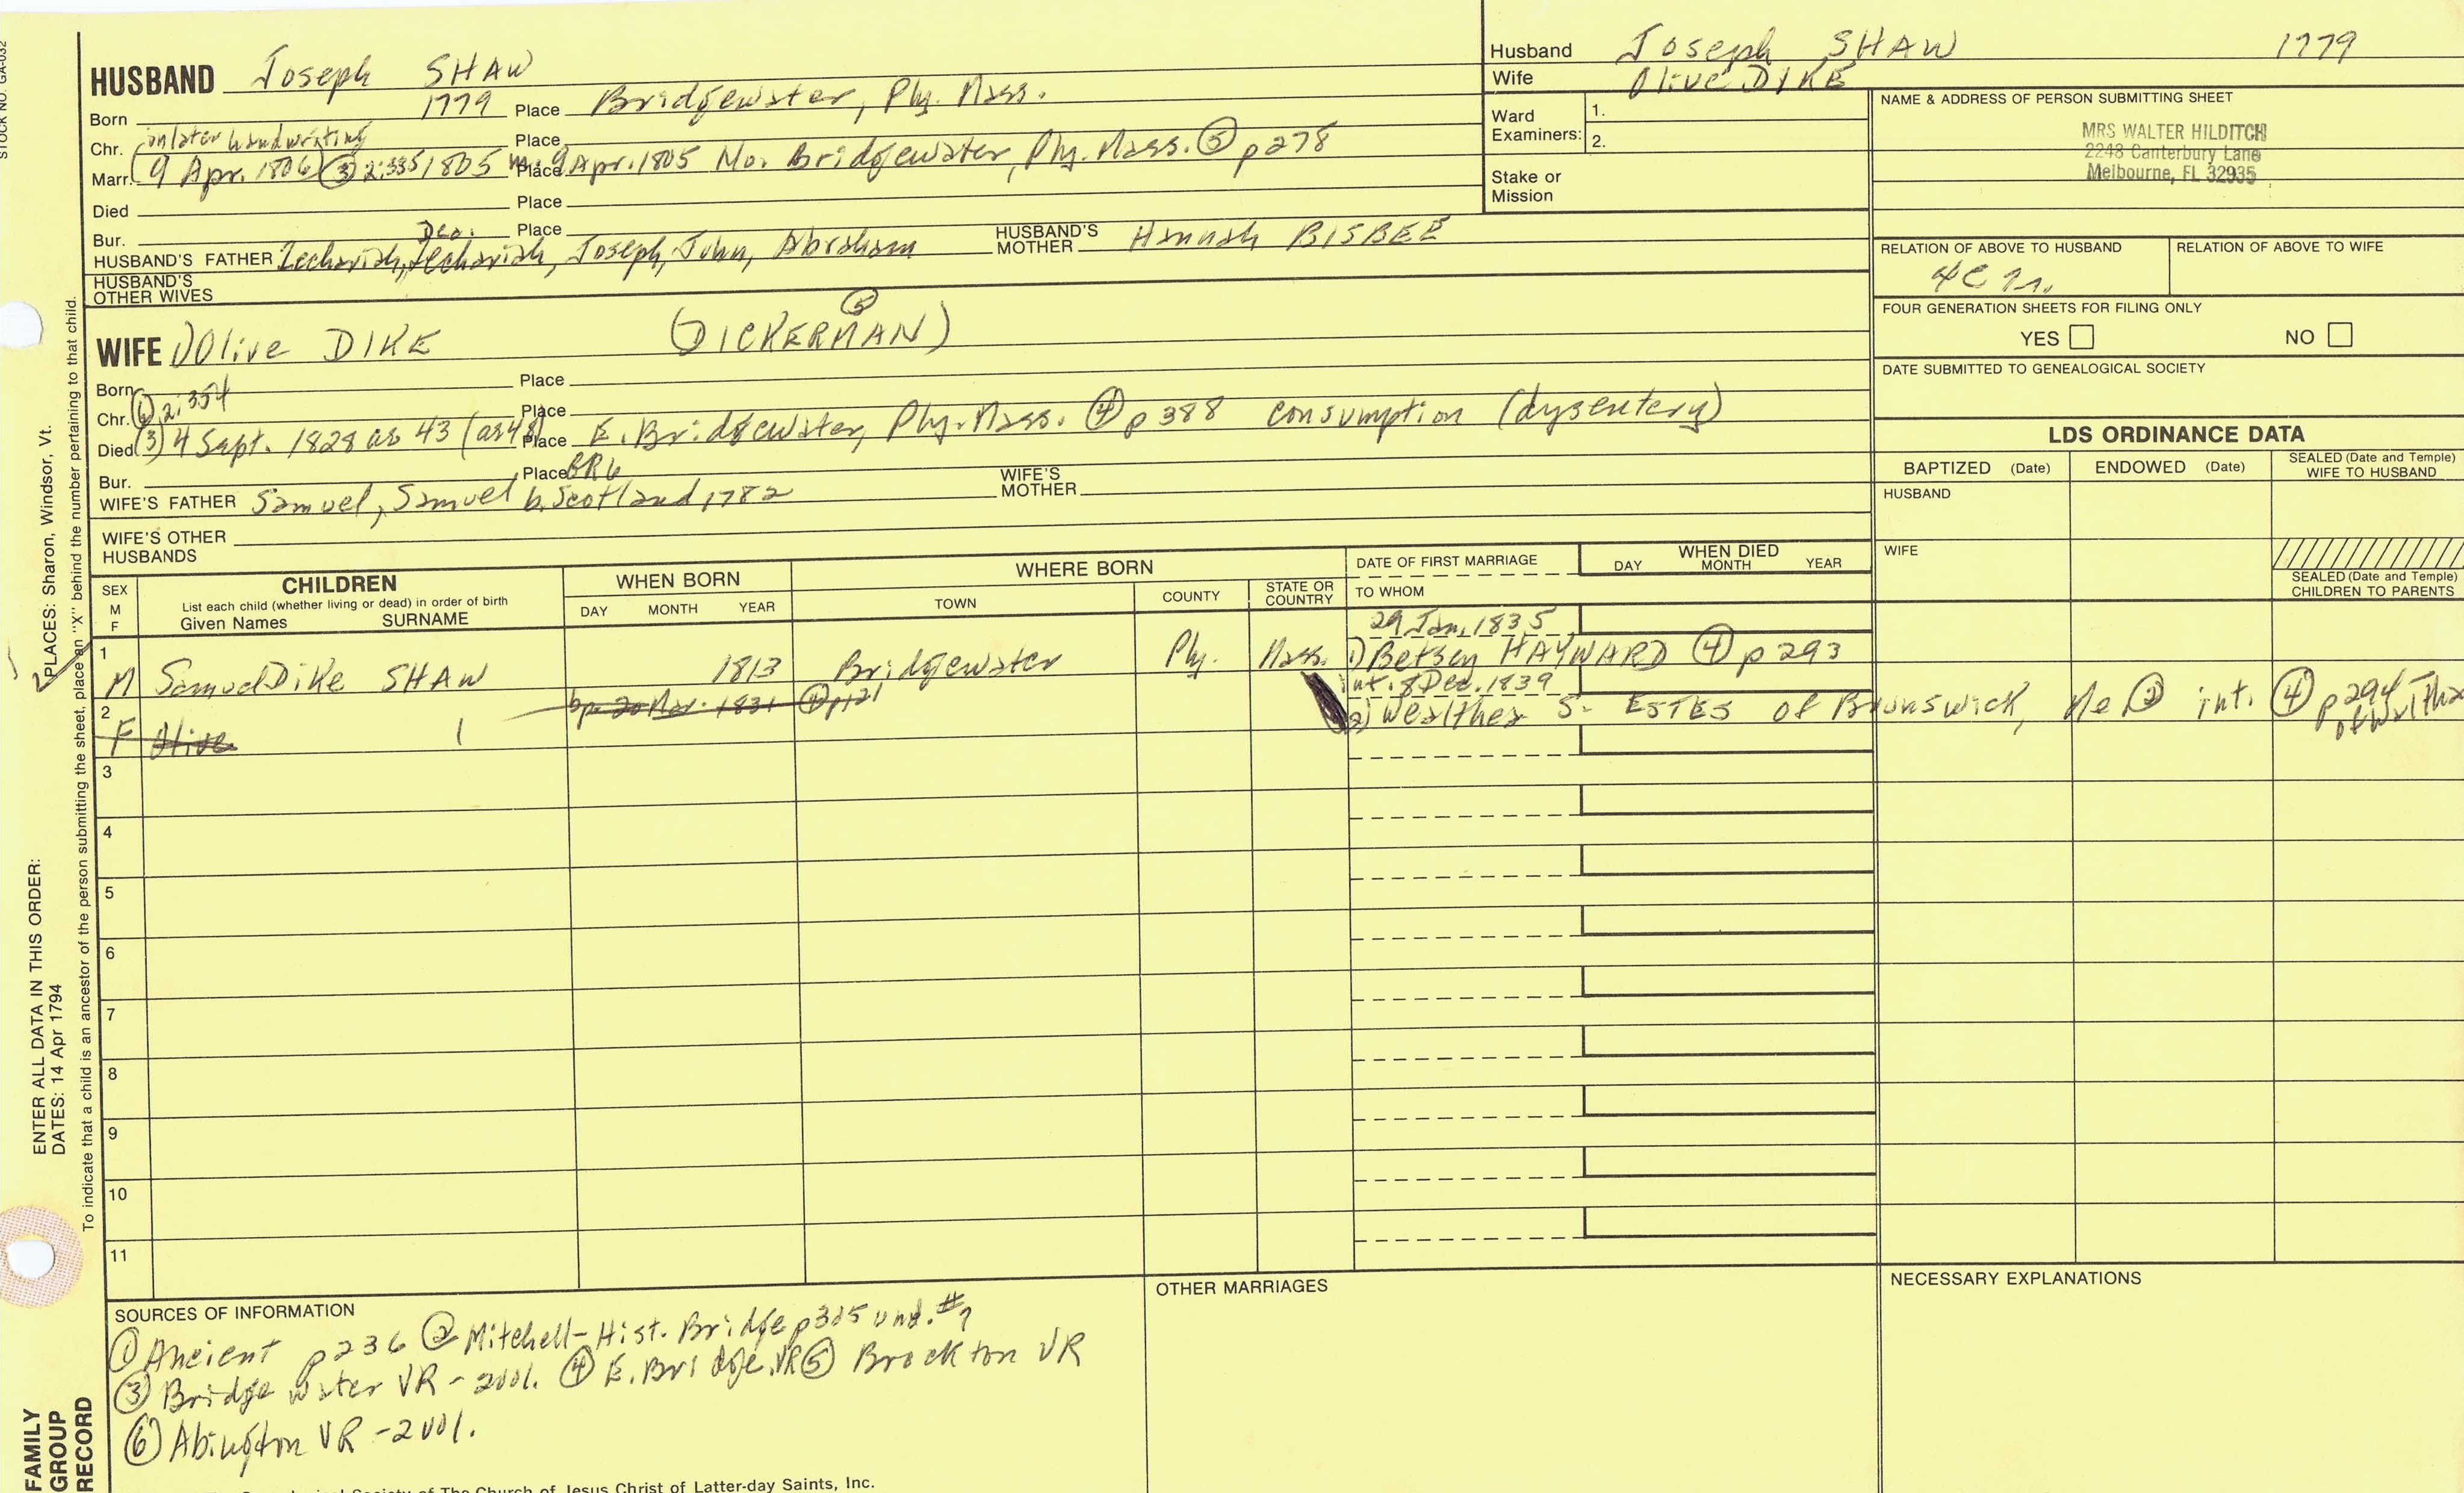 STOCK NO. GA-032
HUSBAND Joseph SHAW
Born 1779 Place Bridgewater, Ply. Mass.
Chr. in later handwriting Place
Marr. (9 Apr. 1806 (3) 2:335) 1805 m. 9 Apr. 1805 Place No. Bridgewater, Ply. Mass. (5) p278
Died Place
Bur. Place
HUSBAND'S FATHER Zechariah, Deo. Zechariah, Joseph, John, Abraham HUSBAND'S MOTHER Hannah BISBEE
HUSBAND'S OTHER WIVES
Husband Joseph SHAW 1779
Wife Olive DIKE
Ward Examiners: 1.
2.
Stake or Mission
NAME & ADDRESS OF PERSON SUBMITTING SHEET
MRS WALTER HILDITCH
2248 Canterbury Lane
Melbourne, FL 32935
RELATION OF ABOVE TO HUSBAND RELATION OF ABOVE TO WIFE
FOUR GENERATION SHEETS FOR FILING ONLY
YES NO
DATE SUBMITTED TO GENEALOGICAL SOCIETY
WIFE 1) Olive DIKE (DICKERMAN) (5)
Born Place
Chr. (6) 2:354 Place
Died (3) 4 Sept. 1828 as 43 (as 48) Place E. Bridgewater, Ply. Mass. (4) p388 consumption (dysentery)
Bur. Place GR6
WIFE'S FATHER Samuel, Samuel b. Scotland, 1782 WIFE'S MOTHER
WIFE'S OTHER HUSBANDS
LDS ORDINANCE DATA
BAPTIZED (Date) ENDOWED (Date) SEALED (Date and Temple) WIFE TO HUSBAND
HUSBAND
WIFE
SEALED (Date and Temple) CHILDREN TO PARENTS
SEX M F
CHILDREN
List each child (whether living or dead) in order of birth
Given Names SURNAME
WHEN BORN
DAY MONTH YEAR
WHERE BORN
TOWN COUNTY STATE OR COUNTRY
DATE OF FIRST MARRIAGE
TO WHOM
WHEN DIED
DAY MONTH YEAR
29 Jan. 1835
1 M Samuel Dike SHAW 1813 Bridgewater Ply. Mass. 1) Betsey HAYWARD (4) p293
int. 8 Dec. 1839
2) Wealthea S. ESTES of Brunswick, Me (2) int. (4) p294
2 F Olive bp. 20 Mar. 1831 (4) p121
3
4
5
6
7
8
9
10
11
SOURCES OF INFORMATION
(1) Ancient p236 (2) Mitchell-Hist. Bridge p305 und. #7
(3) Bridgewater VR-2vol. (4) E. Bridge. VR (5) Brockton VR
(6) Abington VR-2vol.
OTHER MARRIAGES
NECESSARY EXPLANATIONS
of The Church of Jesus Christ of Latter-day Saints, Inc.
ENTER ALL DATA IN THIS ORDER:
DATES: 14 Apr 1794
PLACES: Sharon, Windsor, Vt.
To indicate that a child is an ancestor of the person submitting the sheet, place an "X" behind the number pertaining to that child.
FAMILY GROUP RECORD